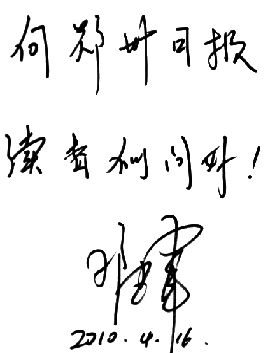 向郑州日报
读者们问好!
2010.4.16.